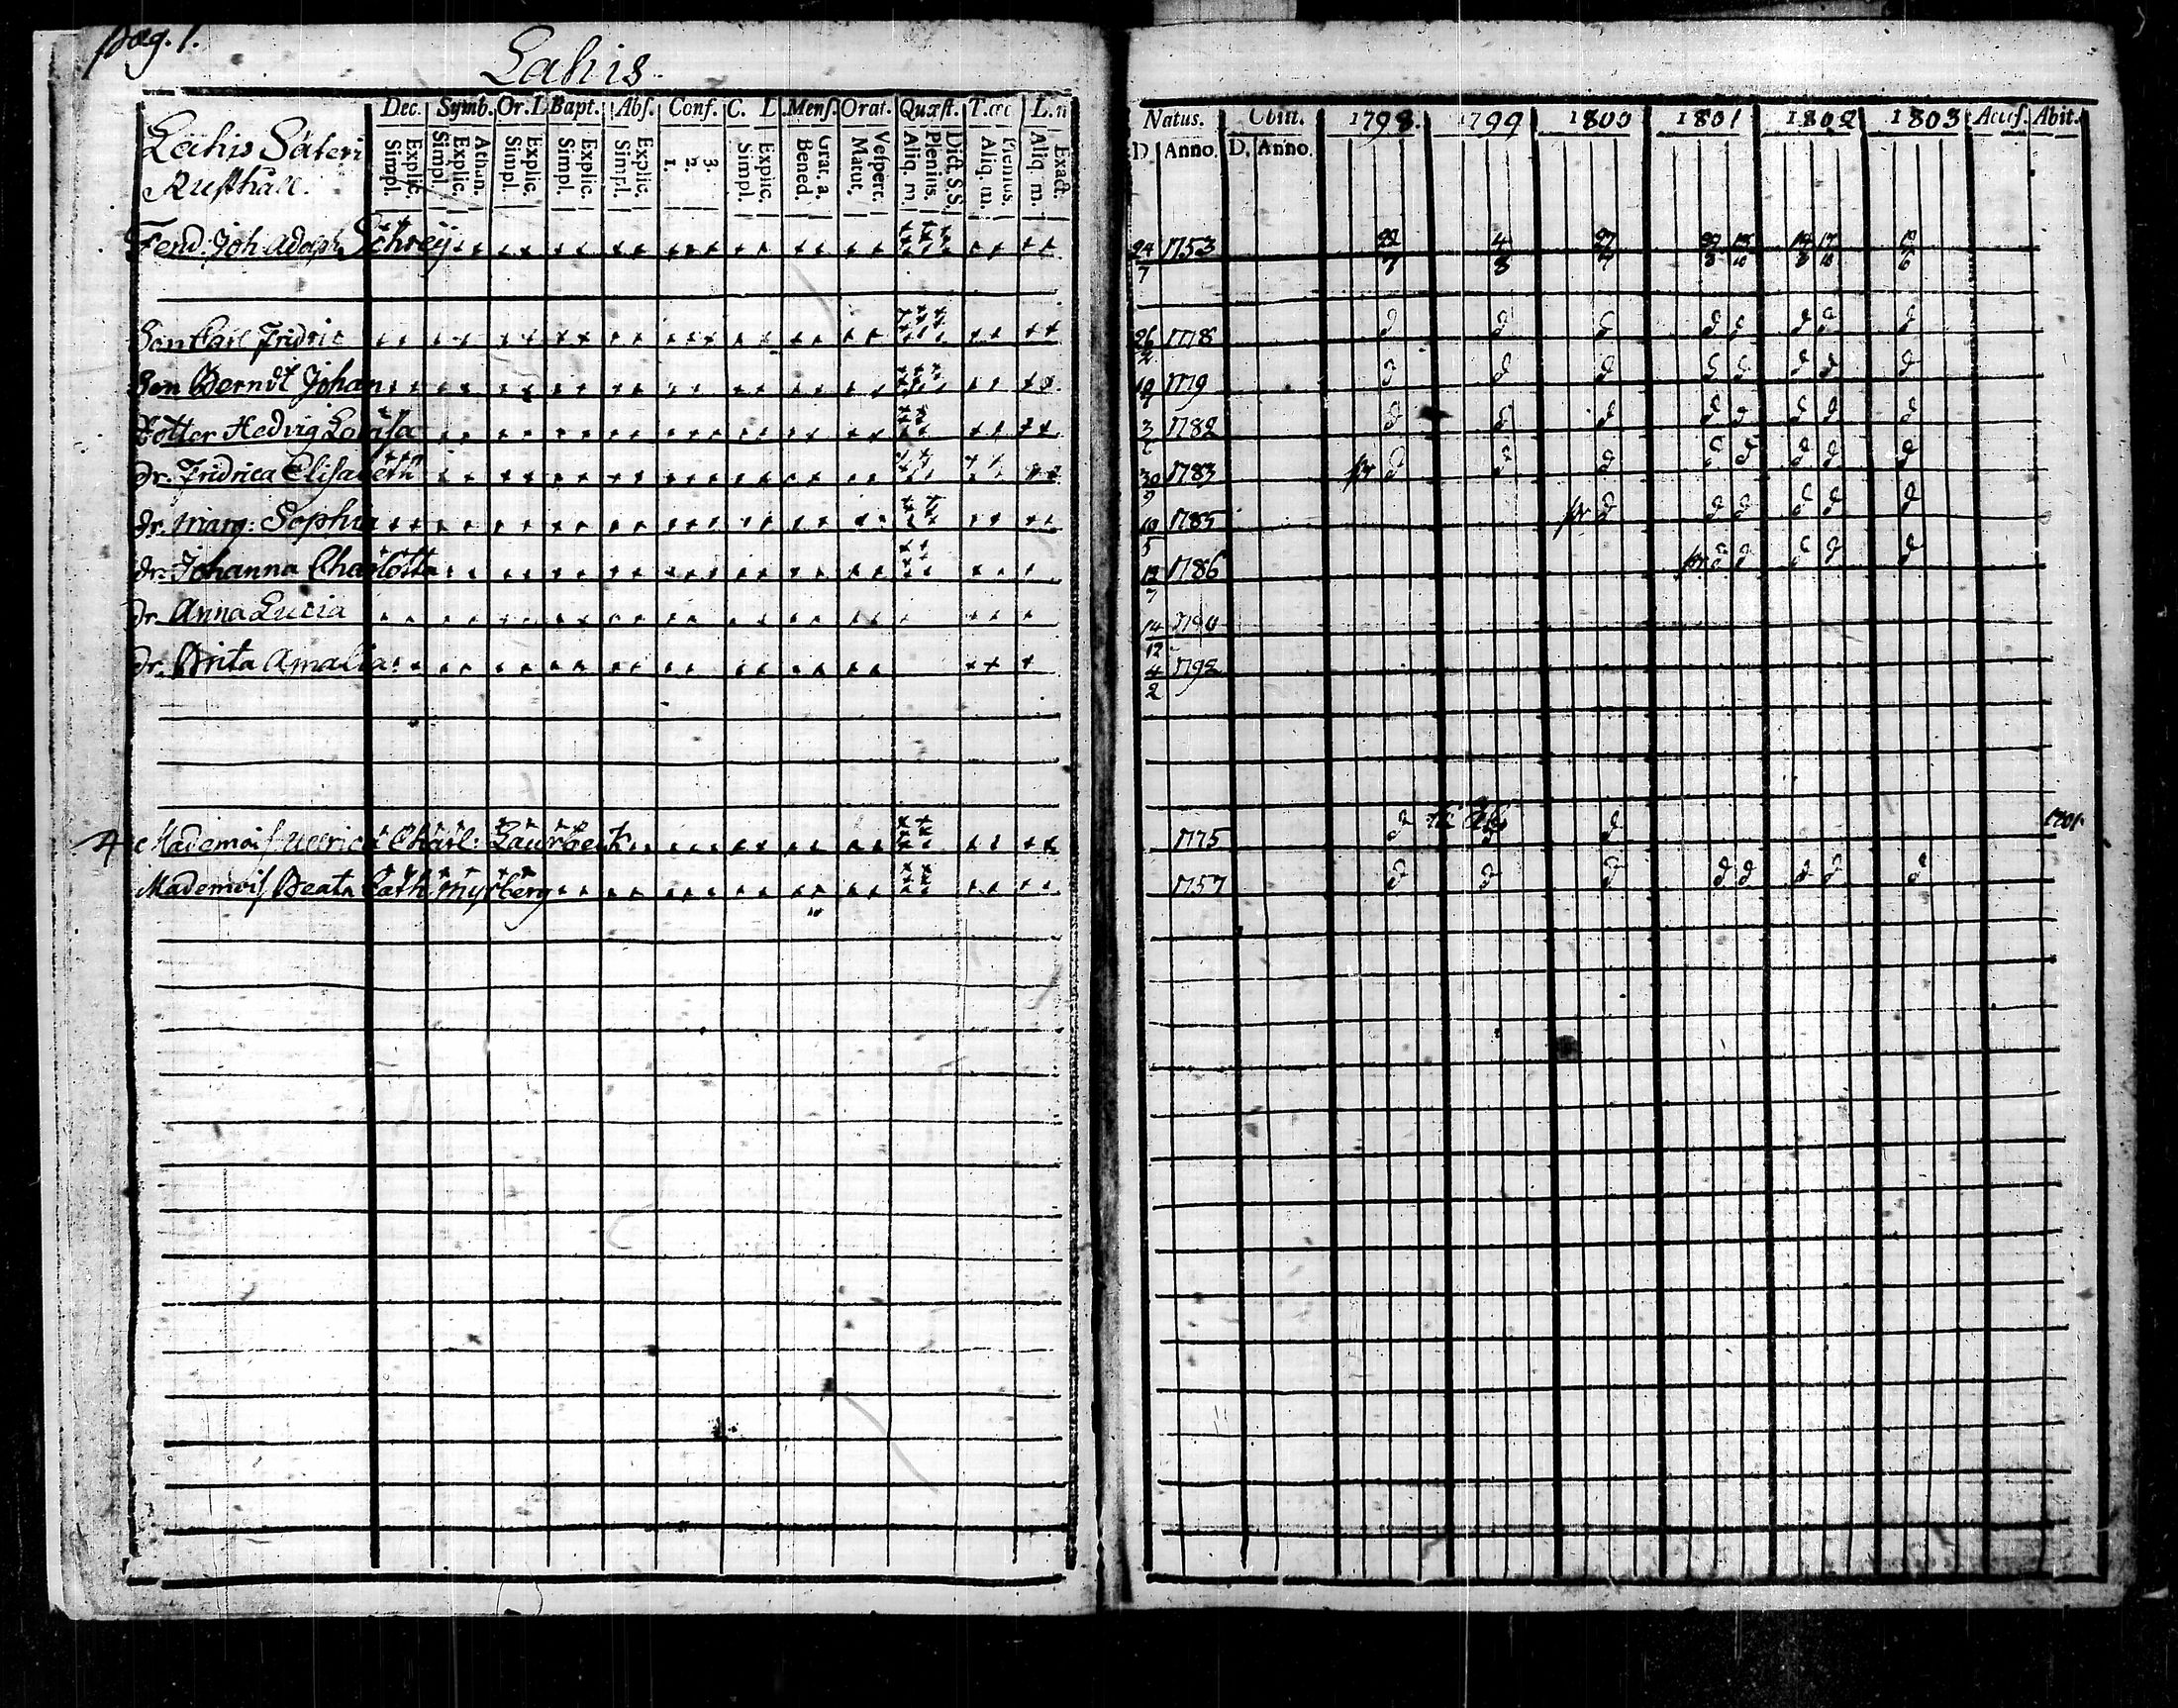 pag. 1.
Lahis
Lahis Säteri
Rusthåll.
Dec. Symb. Or. D Bapt. Abs. Conf. C. L. Mens. Orat. Quæst. T. œc L. n
Simpl. Explic. Simpl. Explic. Athan. Simpl. Explic. Simpl. Explic. Simpl. Explic. 1. 2. 3. Simpl. Explic. Bened. Grat. a. Matut. Vespert. Aliq. m. Plenius. Dict. S. S. Aliq. m. Plenius. Aliq. m. Exact.
Natus. Obiit. 1798. 1799 1800 1801 1802 1803 Access. Abit.
D Anno. D. Anno.
Fend. Joh Adolph Schreij 24/7 1753 22/7 4/8 27/7
Son Carl Fridric 26/2 1778 d d d d d d d d
Son Berndt Johan 1779 d d d d d d d d
Dotter Hedvig Lovisa 1782 d d d d d d d d
dr. Fridrica Elisabeth 30/9 1783 pr d d d d d d d d
dr. Marg: Sophia 10/5 1785 pr d d d d d d
dr. Johanna Charlotta 1786 pr d d d d d
dr. Anna Lucia 14/12
dr. Brita Amalia 4/2 1792
Mademois Ulrica Charl: 1775 d d
Mademois Beata Cath Myrberg 1757 d d d d d d d d